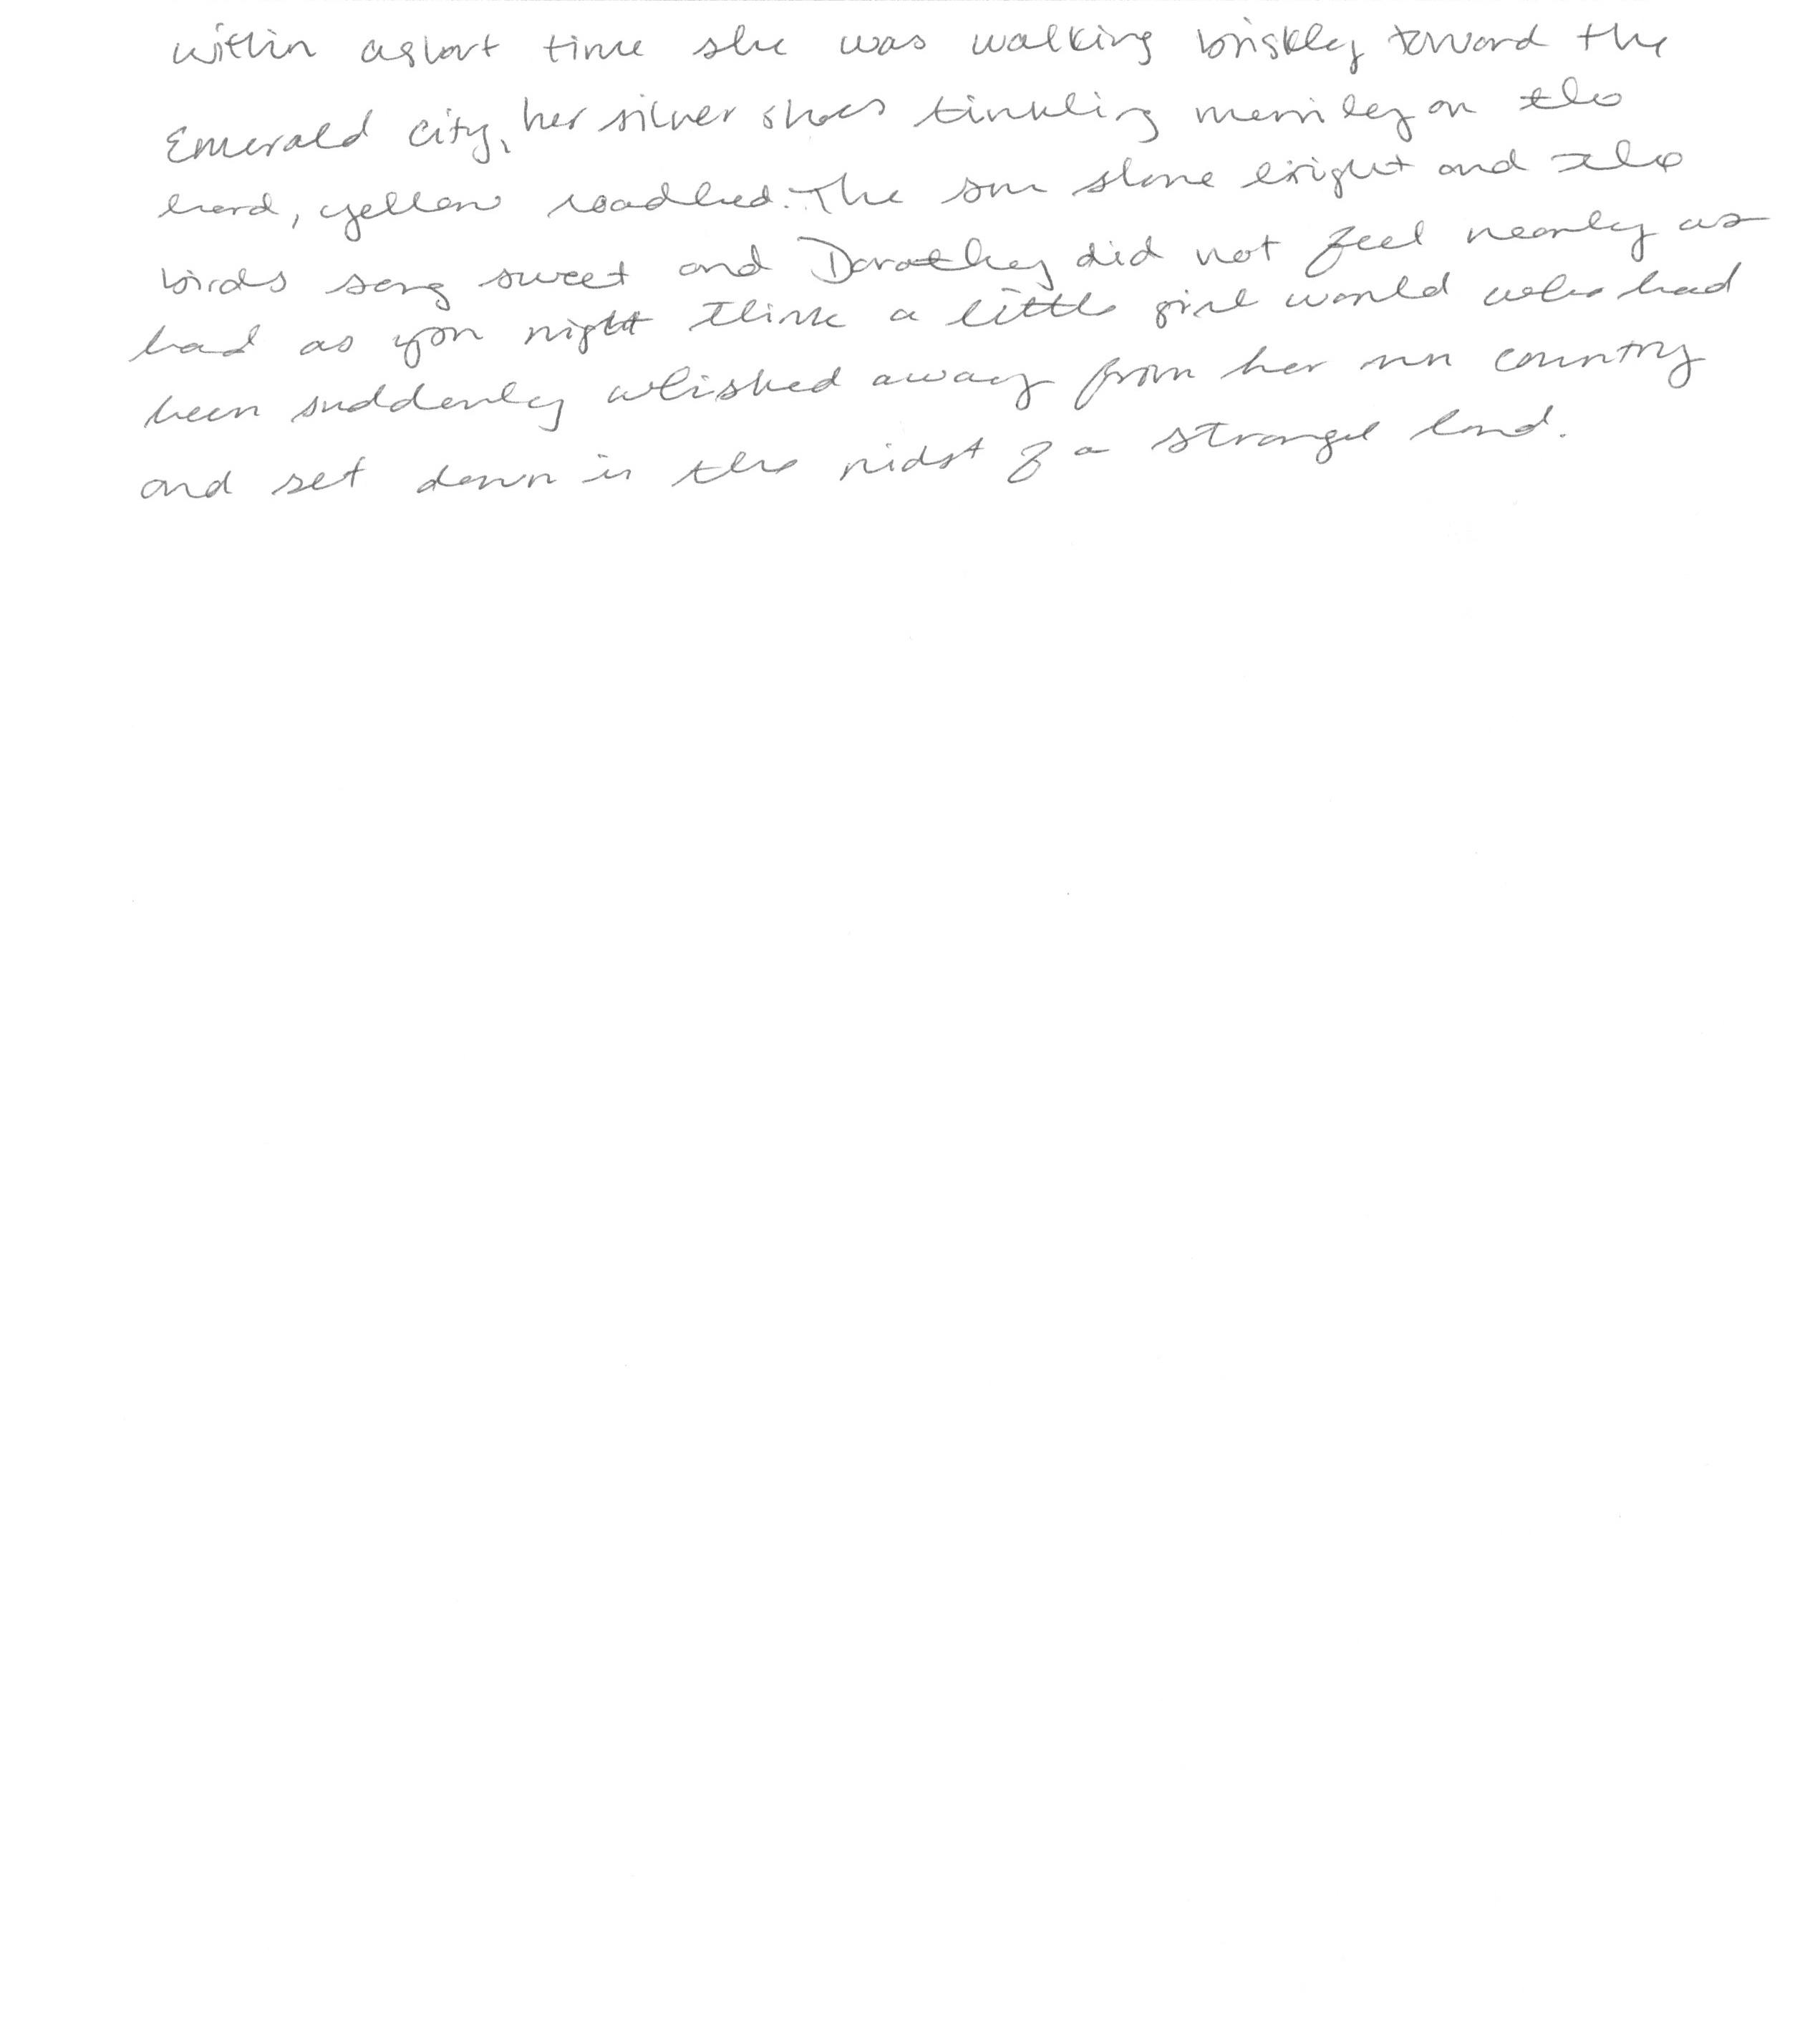 within a short time she was walking briskly toward the
Emerald City, her silver shoes tinkling merrily on the
hard, yellow roadbed. The sun shone bright and the
birds sang sweet and Dorothy did not feel nearly as
bad as you might think a little girl would who had
been suddenly whisked away from her own country
and set down in the midst of a strange land.